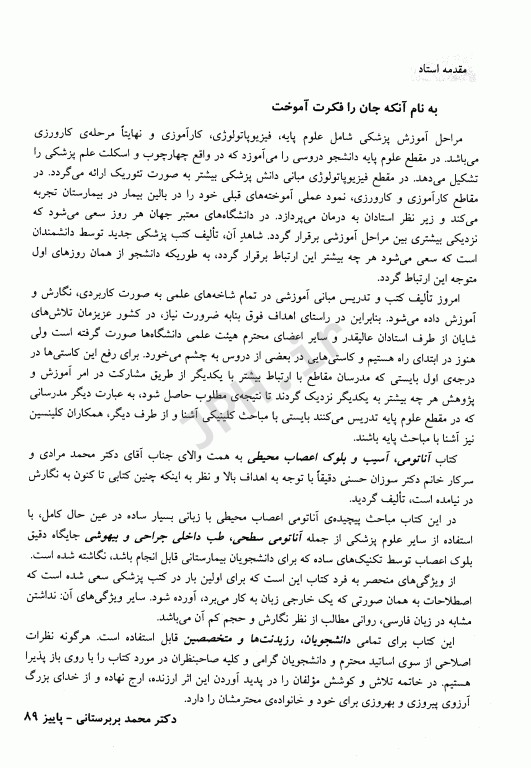 مقدمه استاد
به نام آنکه جان را فکرت آموخت
مراحل آموزش پزشکی شامل علوم پایه، فیزیوپاتولوژی، کارآموزی و نهایتاً مرحله‌ی کارورزی
می‌باشد. در مقطع علوم پایه دانشجو دروسی را می‌آموزد که در واقع چهارچوب و اسکلت علم پزشکی را
تشکیل می‌دهد. در مقطع فیزیوپاتولوژی مبانی دانش پزشکی بیشتر به صورت تئوریک ارائه می‌گردد. در
مقاطع کارآموزی و کارورزی، نمود عملی آموخته‌های قبلی خود را در بالین بیمار در بیمارستان تجربه
می‌کند و زیر نظر استادان به درمان می‌پردازد. در دانشگاه‌های معتبر جهان هر روز سعی می‌شود که
نزدیکی بیشتری بین مراحل آموزشی برقرار گردد. شاهدِ آن، تألیف کتب پزشکی جدید توسط دانشمندان
است که سعی می‌شود هر چه بیشتر این ارتباط برقرار گردد، به طوریکه دانشجو از همان روزهای اول
متوجه این ارتباط گردد.
امروز تألیف کتب و تدریس مبانی آموزشی در تمام شاخه‌های علمی به صورت کاربردی، نگارش و
آموزش داده می‌شود. بنابراین در راستای اهداف فوق بنابه ضرورت نیاز، در کشور عزیزمان تلاش‌های
شایان از طرف استادان عالیقدر و سایر اعضای محترم هیئت علمی دانشگاه‌ها صورت گرفته است ولی
هنوز در ابتدای راه هستیم و کاستی‌هایی در بعضی از دروس به چشم می‌خورد. برای رفع این کاستی‌ها در
درجه‌ی اول بایستی که مدرسان مقاطع با ارتباط بیشتر با یکدیگر از طریق مشارکت در امر آموزش و
پژوهش هر چه بیشتر به یکدیگر نزدیک گردند تا نتیجه‌ی مطلوب حاصل شود، به عبارت دیگر مدرسانی
که در مقطع علوم پایه تدریس می‌کنند بایستی با مباحث کلینیکی آشنا و از طرف دیگر، همکاران کلینسین
نیز آشنا با مباحث پایه باشند.
کتاب آناتومی، آسیب و بلوک اعصاب محیطی به همت والای جناب آقای دکتر محمد مرادی و
سرکار خانم دکتر سوزان حسنی دقیقاً با توجه به اهداف بالا و نظر به اینکه چنین کتابی تا کنون به نگارش
در نیامده است، تألیف گردید.
در این کتاب مباحث پیچیده‌ی آناتومی اعصاب محیطی با زبانی بسیار ساده در عین حال کامل، با
استفاده از سایر علوم پزشکی از جمله آناتومی سطحی، طب داخلی جراحی و بیهوشی جایگاه دقیق
بلوک اعصاب توسط تکنیک‌های ساده که برای دانشجویان بیمارستانی قابل انجام باشد، نگاشته شده است.
از ویژگی‌های منحصر به فرد کتاب این است که برای اولین بار در کتب پزشکی سعی شده است که
اصطلاحات به همان صورتی که یک خارجی زبان به کار می‌برد، آورده شود. سایر ویژگی‌های آن: نداشتن
مشابه در زبان فارسی، روانی مطالب از نظر نگارش و حجم کم آن می‌باشد.
این کتاب برای تمامی دانشجویان، رزیدنت‌ها و متخصصین قابل استفاده است. هرگونه نظرات
اصلاحی از سوی اساتید محترم و دانشجویان گرامی و کلیه صاحبنظران در مورد کتاب را با روی باز پذیرا
هستیم. در خاتمه تلاش و کوشش مؤلفان را در پدید آوردن این اثر ارزنده، ارج نهاده و از خدای بزرگ
آرزوی پیروزی و بهروزی برای خود و خانواده‌ی محترمشان را دارد.
دکتر محمد بربرستانی - پاییز ۸۹
JPH.ir